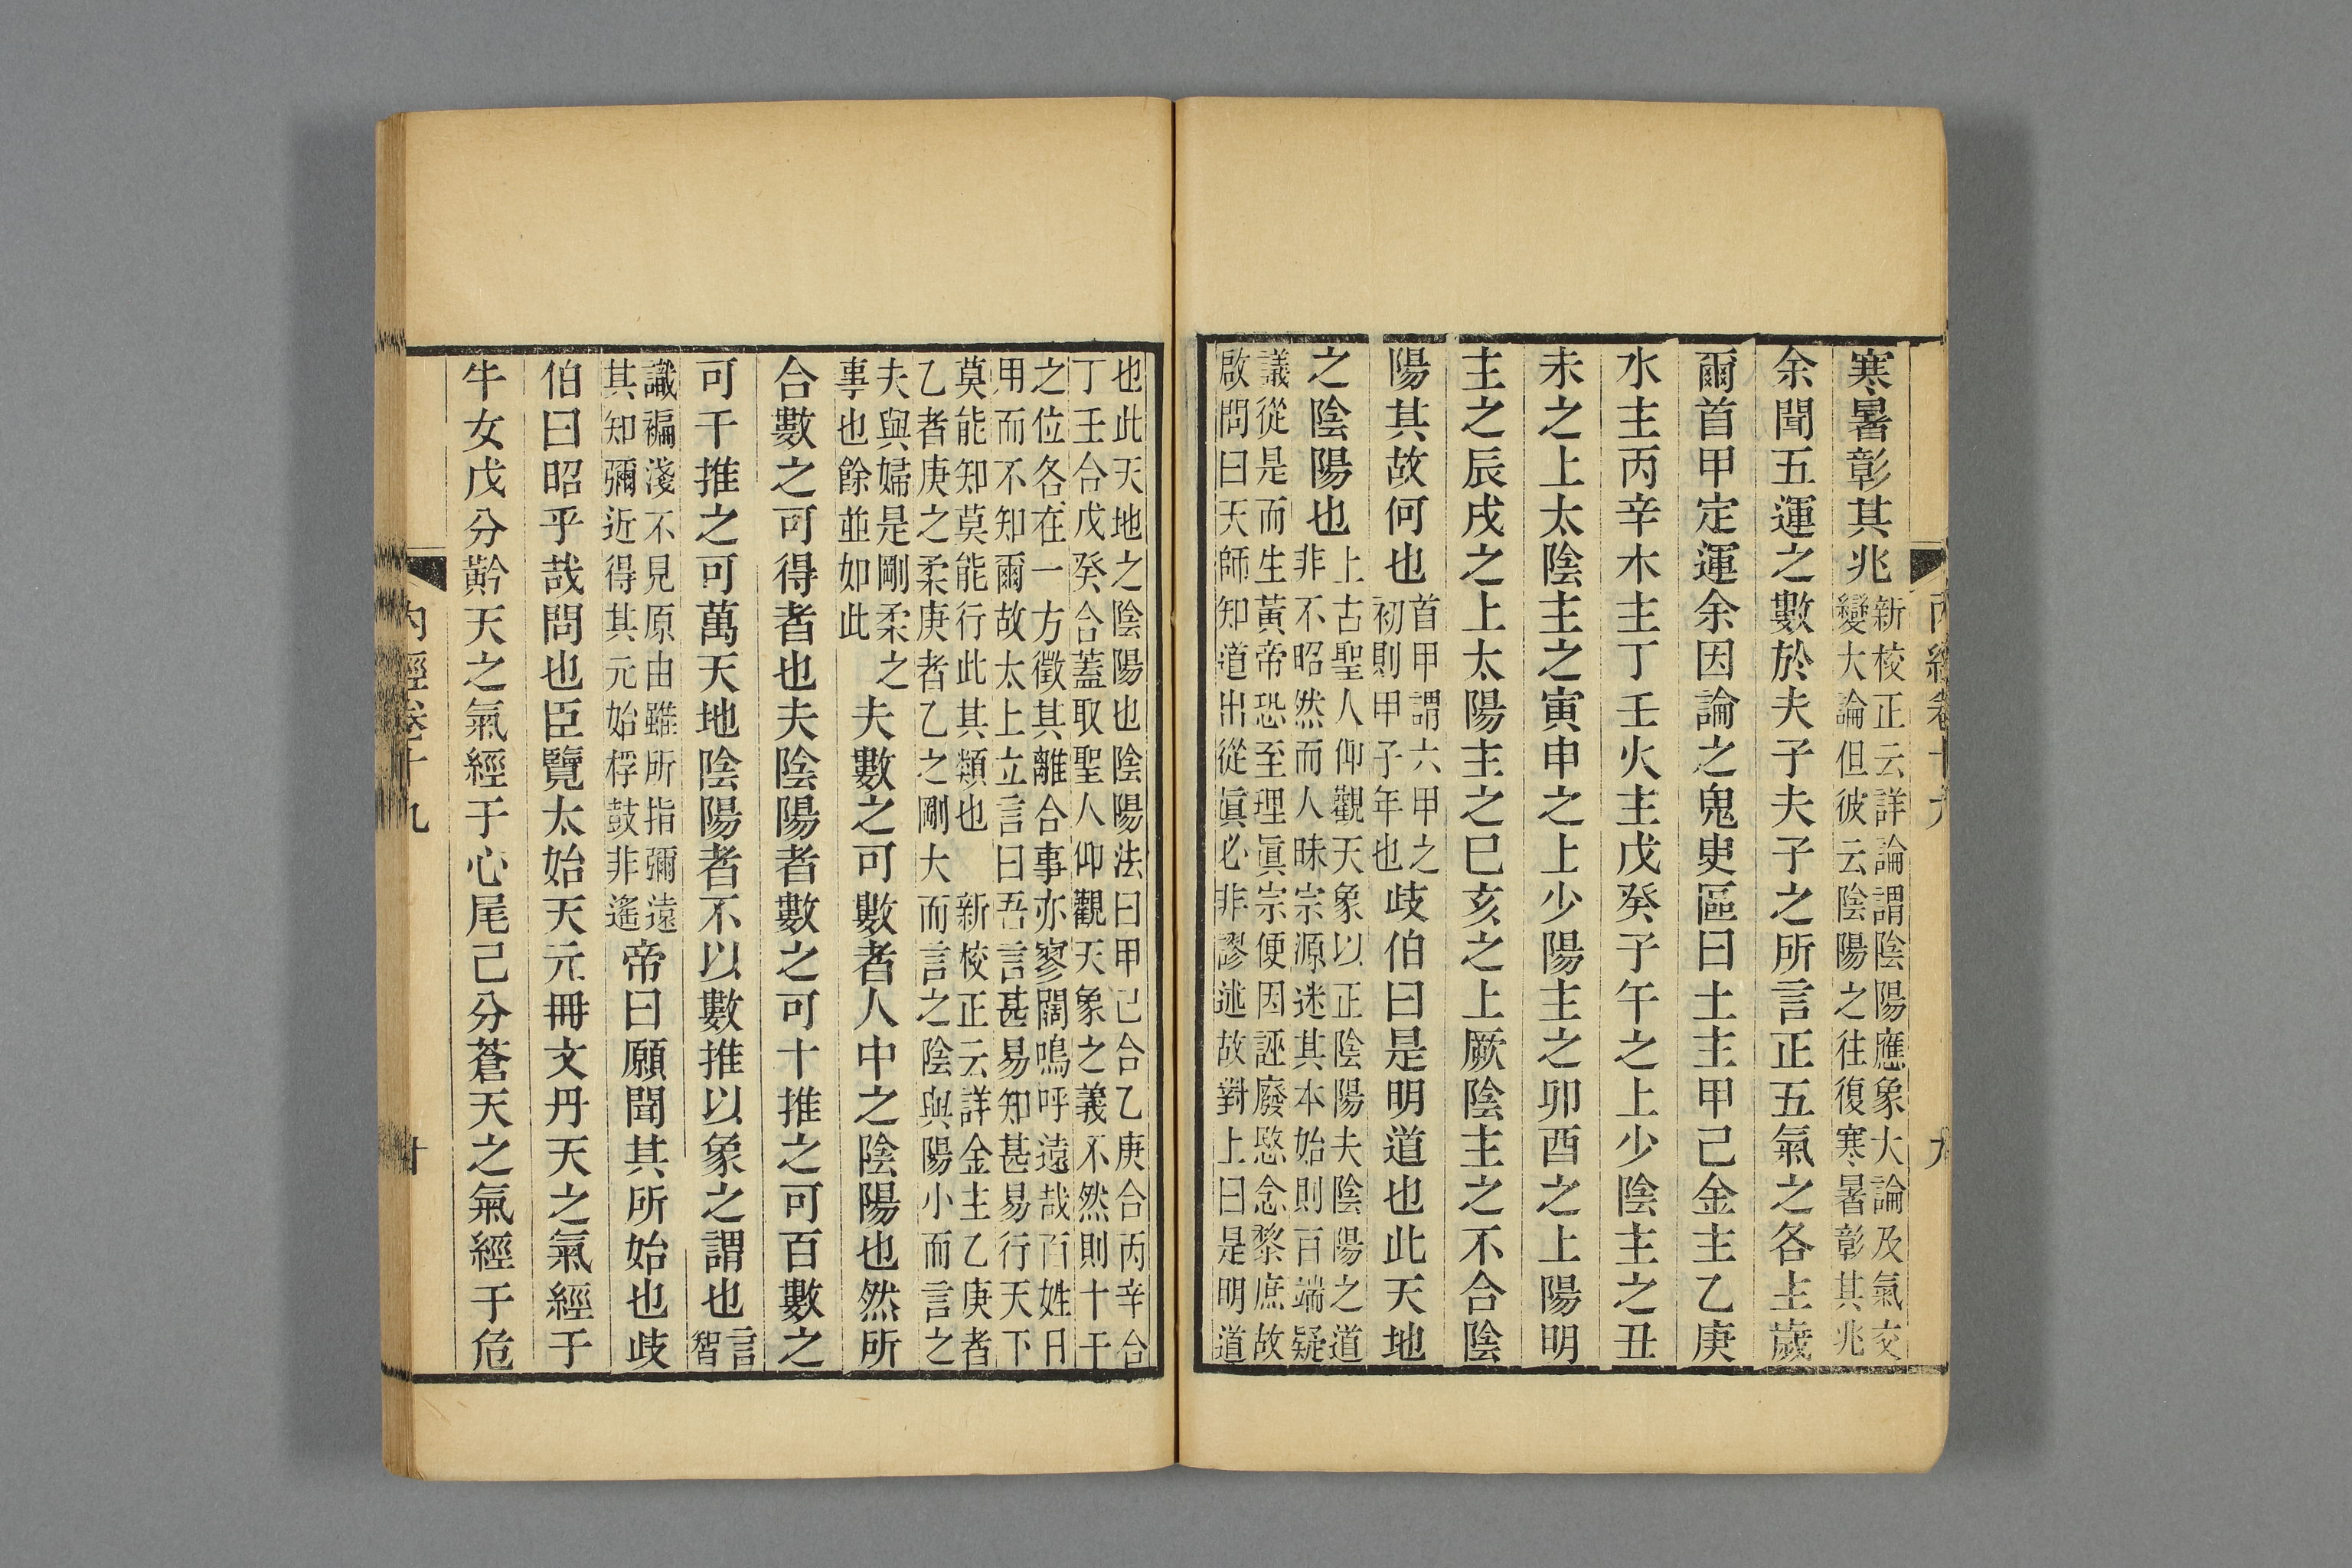 寒暑彰其兆
新校正云詳論謂陰陽應象大論及氣交
變大論但彼云陰陽之往復寒暑彰其兆
余聞五運之數於夫子夫子之所言正五氣之各主歲
爾首甲定運余因論之鬼臾區曰土主甲己金主乙庚
水主丙辛木主丁壬火主戊癸子午之上少陰主之丑
未之上太陰主之寅申之上少陽主之卯酉之上陽明
主之辰戌之上太陽主之巳亥之上厥陰主之不合陰
陽其故何也
首甲謂六甲之
初則甲子年也
歧伯曰是明道也此天地
之陰陽也
上古聖人仰觀天象以正陰陽夫陰陽之道
非不昭然而人昧宗源迷其本始則百端疑
議從是而生黃帝恐至理眞宗便因誣廢愍念黎庶故
啟問曰天師知道出從眞必非謬述故對上曰是明道
也此天地之陰陽也陰陽法曰甲己合乙庚合丙辛合
丁壬合戊癸合蓋取聖人仰觀天象之義不然則十干
之位各在一方徵其離合事亦寥闊嗚呼遠哉百姓日
用而不知爾故太上立言曰吾言甚易知甚易行天下
莫能知莫能行此其類也 新校正云詳金主乙庚者
乙者庚之柔庚者乙之剛大而言之陰與陽小而言之
夫與婦是剛柔之
事也餘並如此
夫數之可數者人中之陰陽也然所
合數之可得者也夫陰陽者數之可十推之可百數之
可千推之可萬天地陰陽者不以數推以象之謂也
言
智
識褊淺不見原由雖所指彌遠
其知彌近得其元始桴鼓非遙
帝曰願聞其所始也歧
伯曰昭乎哉問也臣覽太始天元冊文丹天之氣經于
牛女戊分黅天之氣經于心尾己分蒼天之氣經于危
內經卷十九 廿